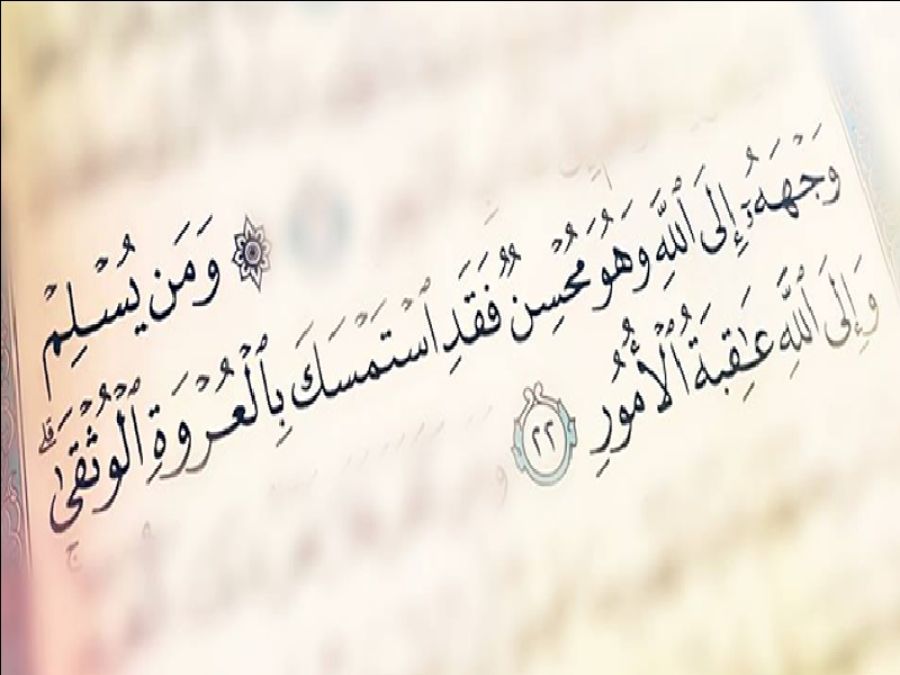 ۞ وَمَن يُسْلِمْ
وَجْهَهُۥٓ إِلَى ٱللَّهِ وَهُوَ مُحْسِنٌ فَقَدِ ٱسْتَمْسَكَ بِٱلْعُرْوَةِ ٱلْوُثْقَىٰ ۗ
وَإِلَى ٱللَّهِ عَـٰقِبَةُ ٱلْأُمُورِ ٢٢